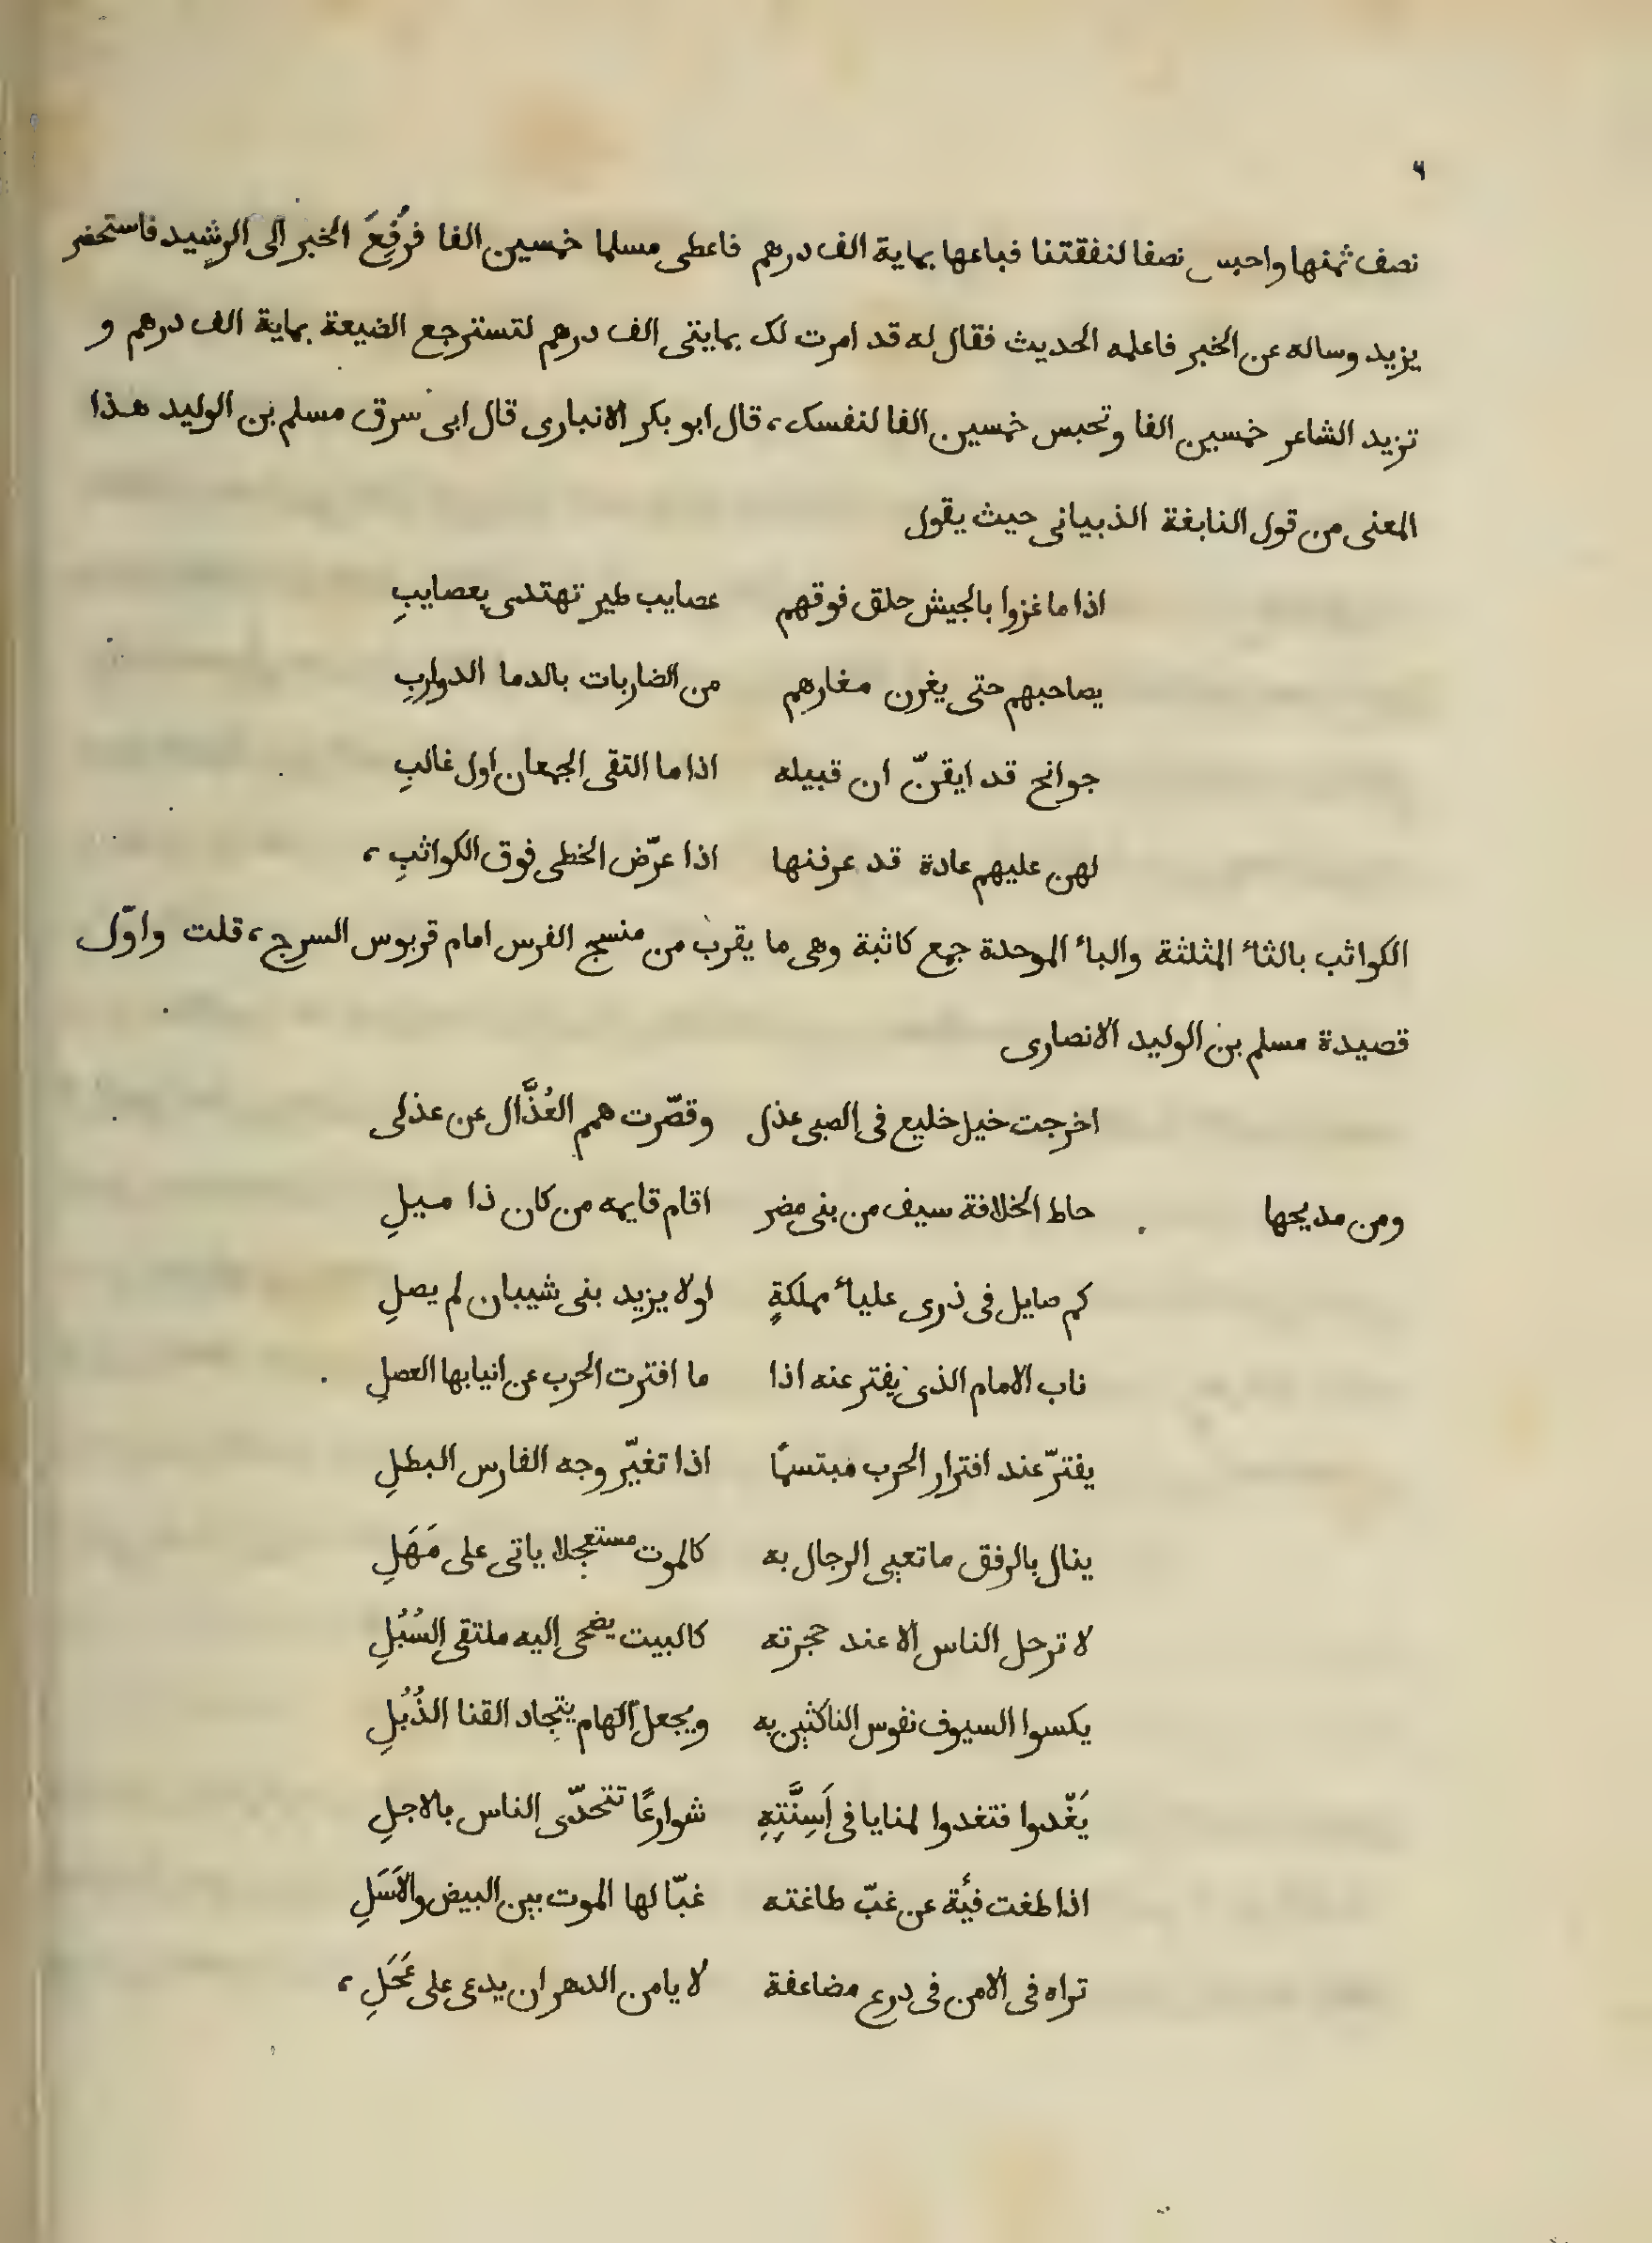 ٦
نصف ثمنها واحبس نصفا لنفقتنا فباعها بماية الف درهم فاعطى مسلما خمسين الفا فرُفِعَ الخبر الى الرشيد فاستحضر
يزيد وساله عن الخبر فاعلمه الحديث فقال له قد امرت لك بمايتى الف درهم لتسترجع الضيعة بماية الف درهم و
تزيد الشاعر خمسين الفا وتحبس خمسين الفا لنفسك، قال ابو بكر الانبارى قال ابى سرق مسلم بن الوليد هذا
المعنى من قول النابغة الذبيانى حيث يقول
اذا ما غزوا بالجيش حلق فوقهم عصايب طير تهتدى بعصايبِ
يصاحبهم حتى يغرن مغارهم من الضاربات بالدما الدواربِ
جوانح قد ايقنّ ان قبيله اذا ما التقى الجمعان اول غالبِ
لهن عليهم عادة قد عرفنها اذا عرّض الخطى فوق الكواثبِ،
الكواثب بالثاء المثلثة والباء الموحدة جمع كاثبة وهى ما يقرب من منسج الفرس امام قربوس السرج، قلت واوّل
قصيدة مسلم بن الوليد الانصارى
اخرجت خيل خليع فى الصبى عذل وقصّرت همم العُذَّال عن عذلى
ومن مديحها حاط الخلافة سيف من بنى مضر اقام قايمه من كان ذا ميلِ
كم صايل فى ذرى علياء مملكةٍ لولا يزيد بنى شيبان لم يصلِ
ناب الامام الذى يفتر عنه اذا ما افترت الحرب عن انيابها العصلِ
يفترّ عند افترار الحرب مبتسمًا اذا تغيّر وجه الفارس البطلِ
ينال بالرفق ما تعيى الرجال به كالموت مستعجلا ياتى على مَهَلِ
لا ترحل الناس الا عند حجرته كالبيت يضحى اليه ملتقى السُبُلِ
يكسوا السيوف نفوس الناكثين به ويجعل الهام يتجاد القنا الذُبُلِ
يَغْدوا فتغدوا لمنايا فى اَسِنَّتِهِ شوارعًا تتحدّى الناس بالاجلِ
اذا طغت فيًة عن غبّ طاغته غبّا لها الموت بين البيض والاَسَلِ
تراه فى الامن فى درع مضاعفة لا يامن الدهر ان يدعى على عَجَلِ،